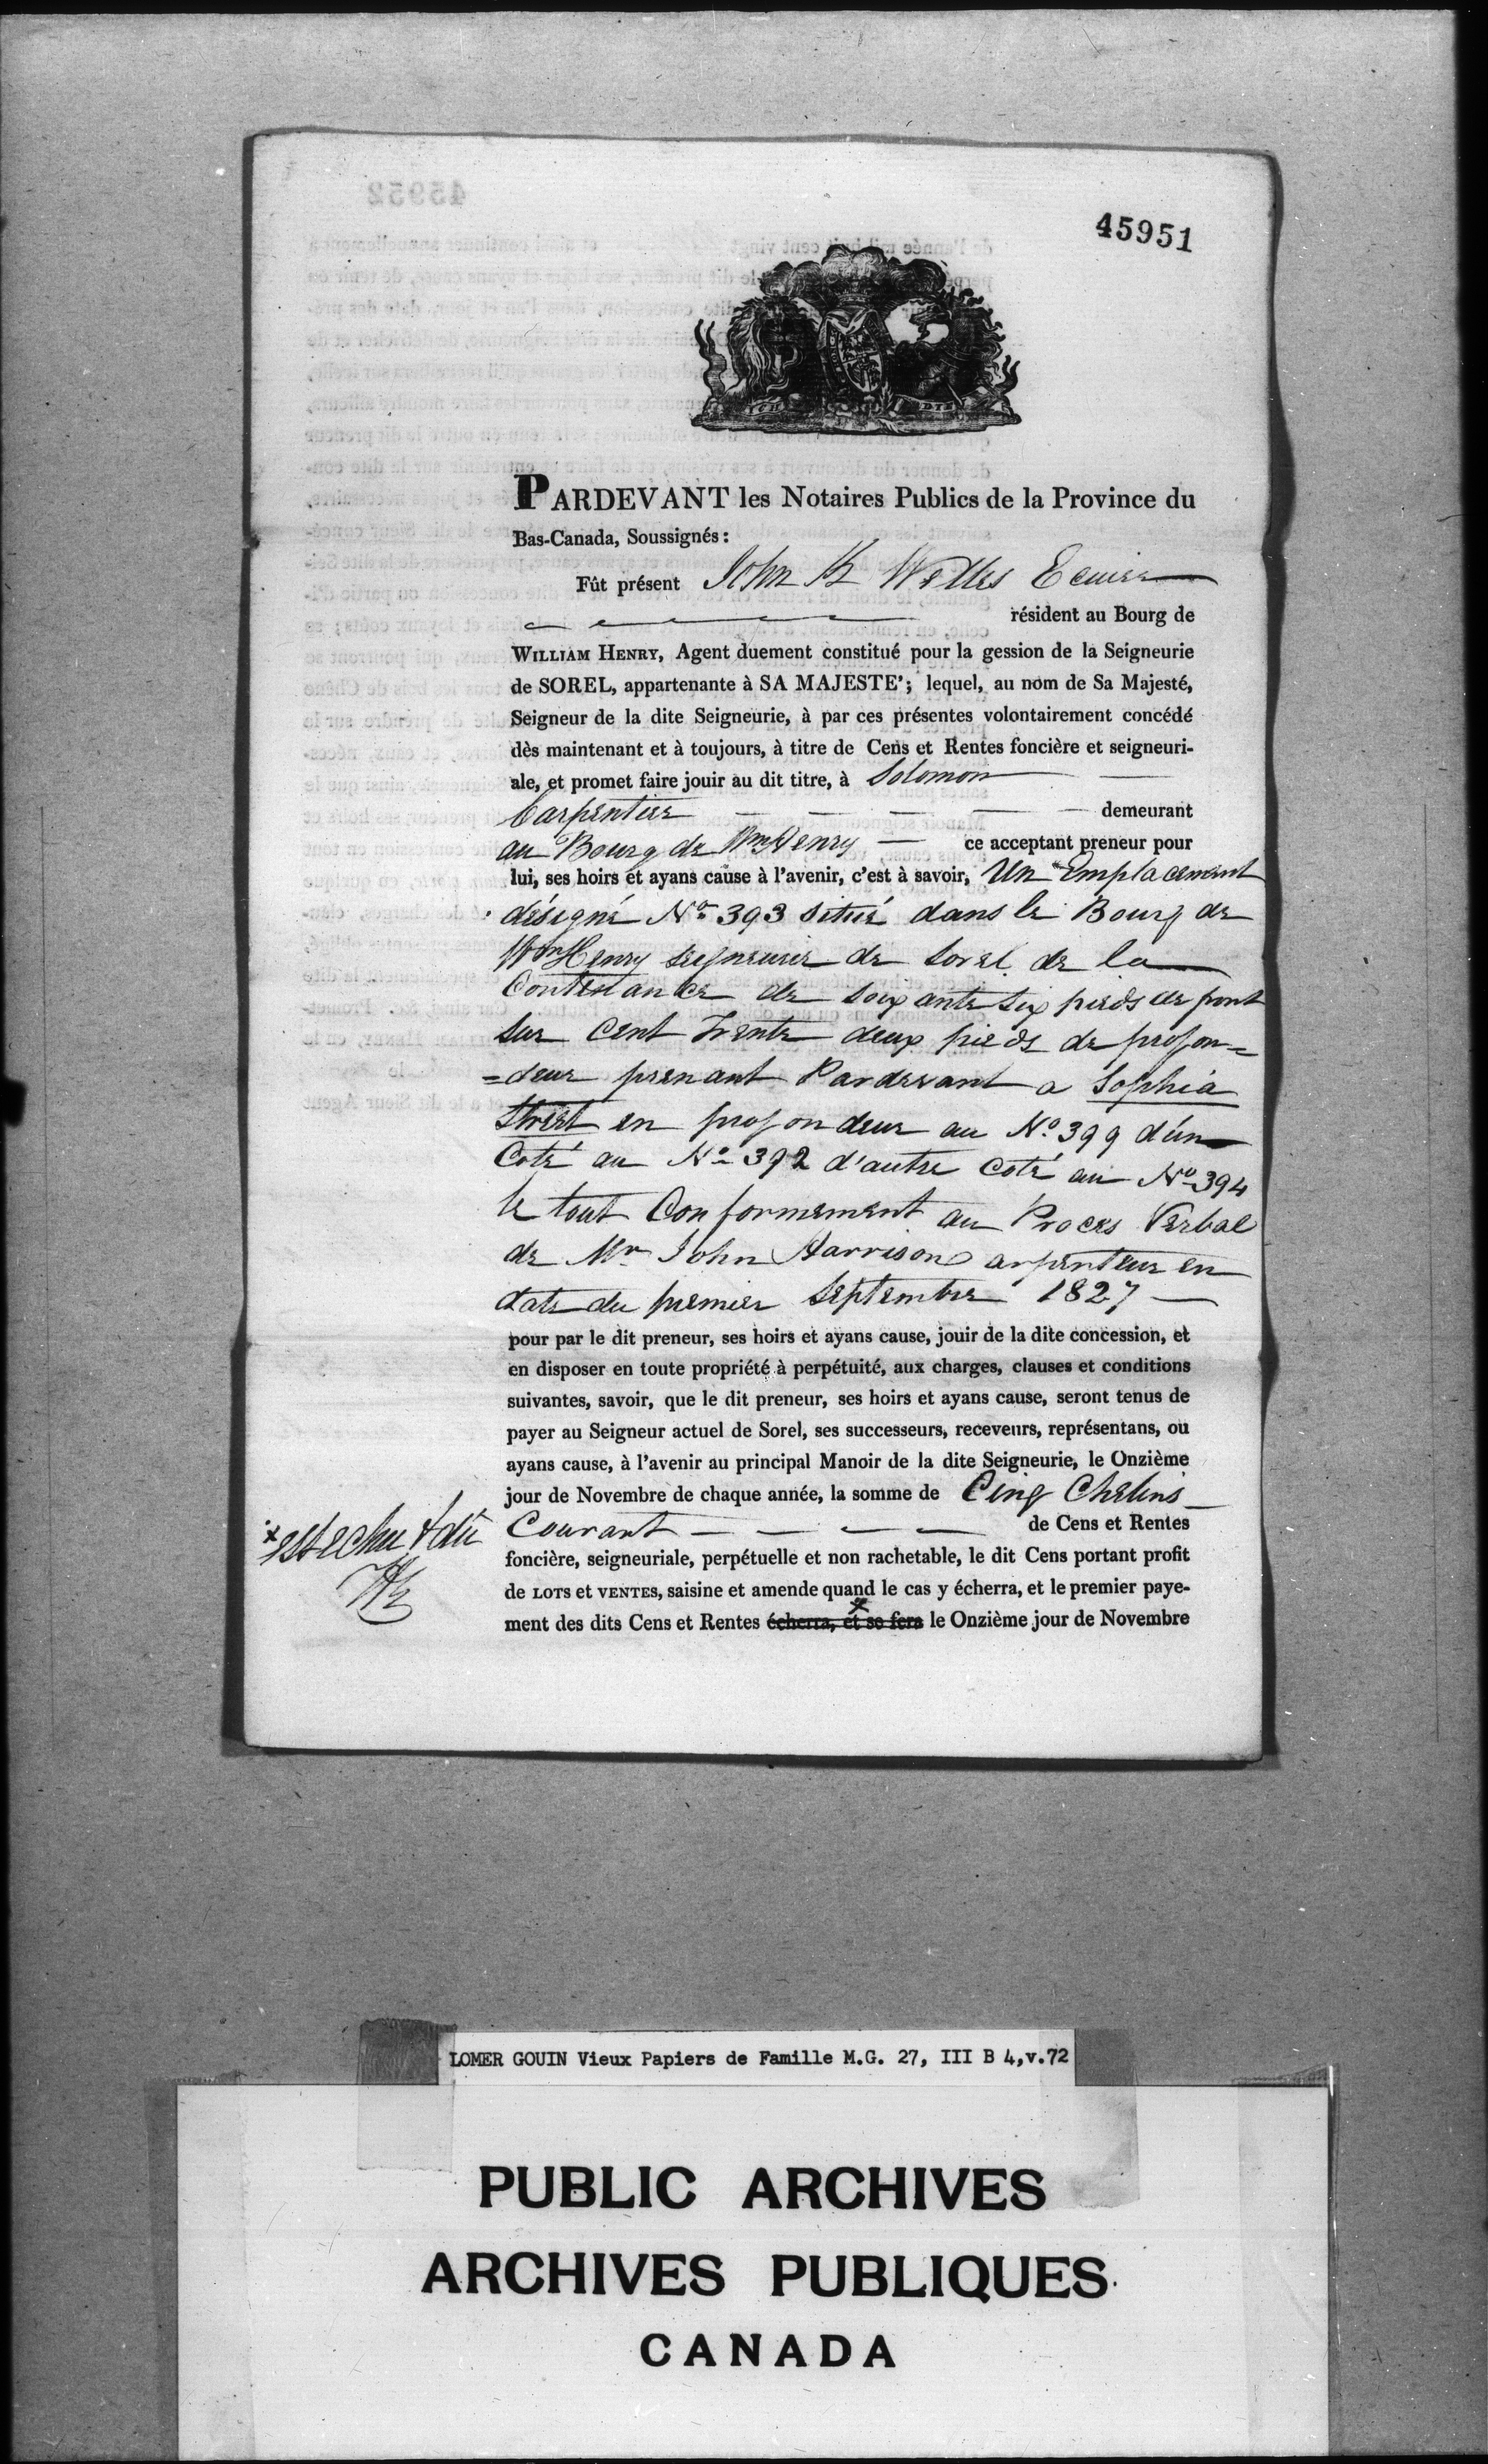 45951
PARDEVANT les Notaires Publics de la Province du
Bas-Canada, Soussignés:
Fût présent John K Welles Ecuier
résident au Bourg de
WILLIAM HENRY, Agent duement constitué pour la gession de la Seigneurie
de SOREL, appartenante à SA MAJESTE'; lequel, au nom de Sa Majesté,
Seigneur de la dite Seigneurie, à par ces présentes volontairement concédé
dès maintenant et à toujours, à titre de Cens et Rentes foncière et seigneuri-
ale, et promet faire jouir au dit titre, à Solomon
Carpentier demeurant
au Bourg de Wm Henry ce acceptant preneur pour
lui, ses hoirs et ayans cause à l'avenir, c'est à savoir, Un Emplacement
désigné No 393 situé dans le Bourg de
Wm Henry seigneurie de Sorel de la
Contenance de soixante six pieds de front
sur Cent Trente deux pieds de profon=
=deur prenant Pardevant a Sophia
Street en profondeur au No 399 d'un
Coté au No 392 d'autre coté au No 394
le tout Conformement au Procès Verbal
de Mr John Harrison arpenteur en
date du premier Septembre 1827
pour par le dit preneur, ses hoirs et ayans cause, jouir de la dite concession, et
en disposer en toute propriété à perpétuité, aux charges, clauses et conditions
suivantes, savoir, que le dit preneur, ses hoirs et ayans cause, seront tenus de
payer au Seigneur actuel de Sorel, ses successeurs, receveurs, représentans, ou
ayans cause, à l'avenir au principal Manoir de la dite Seigneurie, le Onzième
jour de Novembre de chaque année, la somme de Cinq Chelins
Courant de Cens et Rentes
foncière, seigneuriale, perpétuelle et non rachetable, le dit Cens portant profit
de LOTS et VENTES, saisine et amende quand le cas y écherra, et le premier paye-
ment des dits Cens et Rentes écherra, et se fera le Onzième jour de Novembre
x est echu & dû
LOMER GOUIN Vieux Papiers de Famille M.G. 27, III B 4,v.72
PUBLIC ARCHIVES
ARCHIVES PUBLIQUES
CANADA